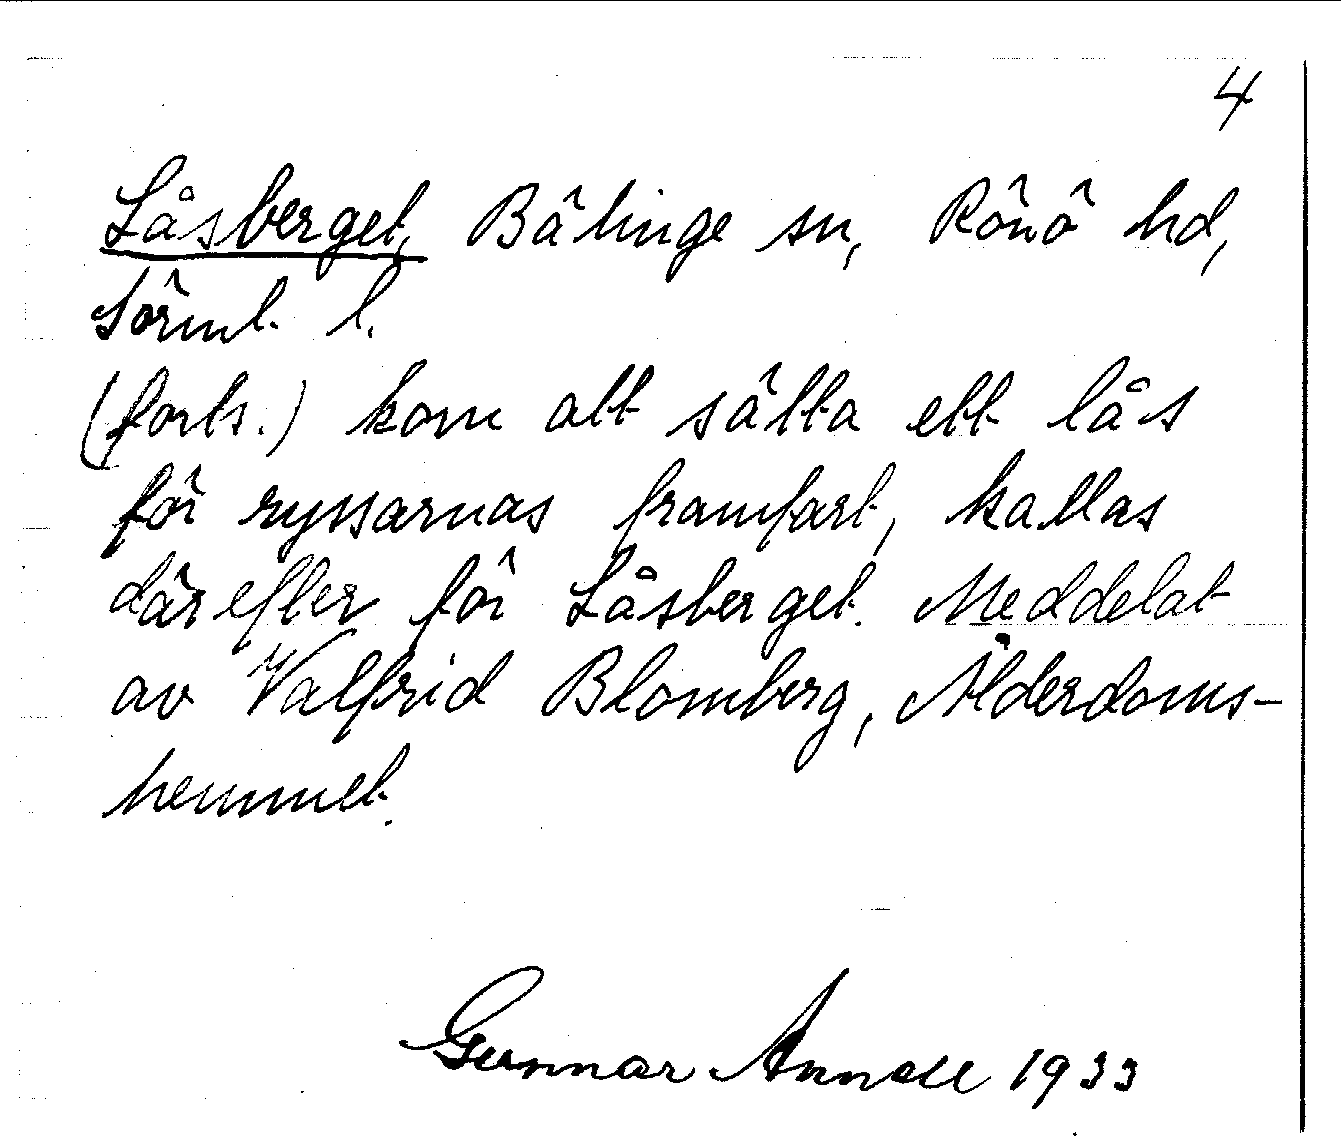 4
Låsberget, Bälinge sn, Rönö hd,
Sörml. l.
(forts.) kom att sätta ett lås
för ryssarnas framfart, kallas
därefter för Låsberget. Meddelat
av Valfrid Blomberg, Ålderdoms-
hemmet.
Gunnar Annell 1933